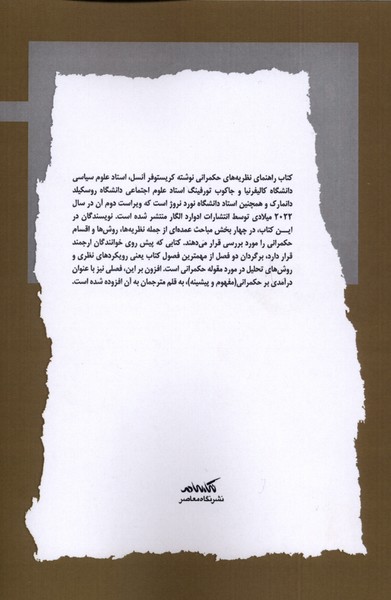 کتاب راهنمای نظریه‌های حکمرانی نوشته کریستوفر آنسل، استاد علوم سیاسی
دانشگاه کالیفرنیا و جاکوب تورفینگ استاد علوم اجتماعی دانشگاه روسکیلد
دانمارک و همچنین استاد دانشگاه نورد نروژ است که ویراست دوم آن در سال
۲۰۲۲ میلادی توسط انتشارات ادوارد الگار منتشر شده است. نویسندگان در
این کتاب، در چهار بخش مباحث عمده‌ای از جمله نظریه‌ها، روش‌ها و اقسام
حکمرانی را مورد بررسی قرار می‌دهند. کتابی که پیش روی خوانندگان ارجمند
قرار دارد، برگردان دو فصل از مهمترین فصول کتاب یعنی رویکردهای نظری و
روش‌های تحلیل در مورد مقوله حکمرانی است. افزون بر این، فصلی نیز با عنوان
درآمدی بر حکمرانی(مفهوم و پیشینه)، به قلم مترجمان به آن افزوده شده است.
نشر نگاه معاصر